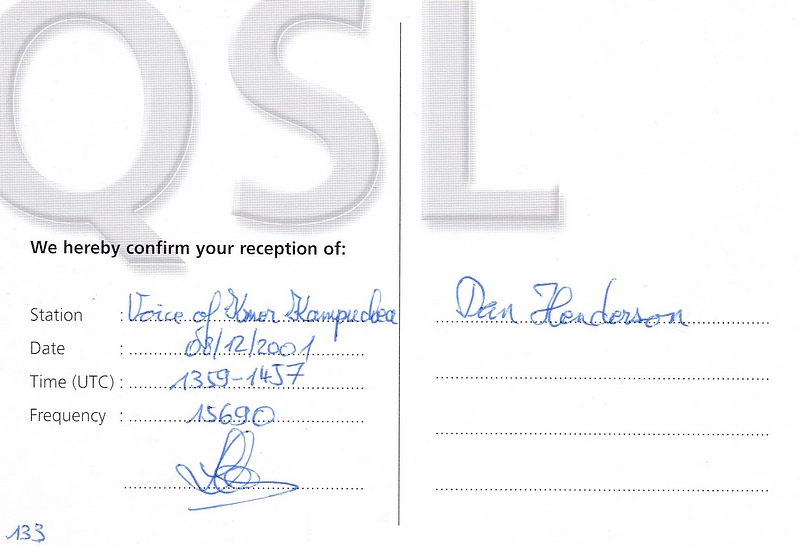 QSL
We hereby confirm your reception of:
Station : Voice of Kmer Kampuchea
Date : 08/12/2001
Time (UTC) : 1359-1457
Frequency : 15690
133
Dan Henderson